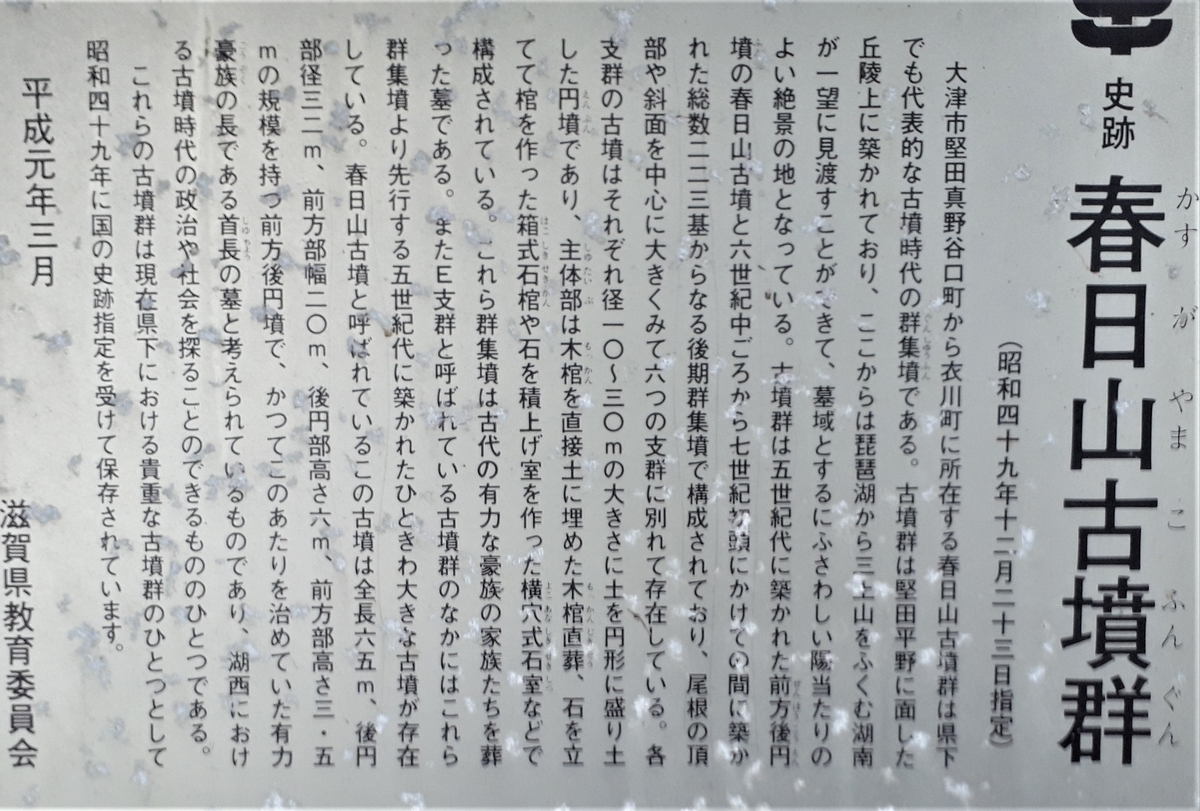 史跡 春日山古墳群
かすがやまこふんぐん
（昭和四十九年十二月二十三日指定）
大津市堅田真野谷口町から衣川町に所在する春日山古墳群は県下
でも代表的な古墳時代の群集墳である。古墳群は堅田平野に面した
丘陵上に築かれており、ここからは琵琶湖から三上山をふくむ湖南
が一望に見渡すことができて、墓域とするにふさわしい陽当たりの
よい絶景の地となっている。古墳群は五世紀代に築かれた前方後円
墳の春日山古墳と六世紀中ごろから七世紀初頭にかけての間に築か
れた総数二二三基からなる後期群集墳で構成されており、尾根の頂
部や斜面を中心に大きくみて六つの支群に別れて存在している。各
支群の古墳はそれぞれ径一〇〜三〇ｍの大きさに土を円形に盛り土
した円墳であり、主体部は木棺を直接土に埋めた木棺直葬、石を立
てて棺を作った箱式石棺や石を積上げ室を作った横穴式石室などで
構成されている。これら群集墳は古代の有力な豪族の家族たちを葬
った墓である。またＥ支群と呼ばれている古墳群のなかにはこれら
群集墳より先行する五世紀代に築かれたひときわ大きな古墳が存在
している。春日山古墳と呼ばれているこの古墳は全長六五ｍ、後円
部径三二ｍ、前方部幅二〇ｍ、後円部高さ六ｍ、前方部高さ三・五
ｍの規模を持つ前方後円墳で、かつてこのあたりを治めていた有力
豪族の長である首長の墓と考えられているものであり、湖西におけ
る古墳時代の政治や社会を探ることのできるもののひとつである。
これらの古墳群は現在県下における貴重な古墳群のひとつとして
昭和四十九年に国の史跡指定を受けて保存されています。
平成元年三月
滋賀県教育委員会